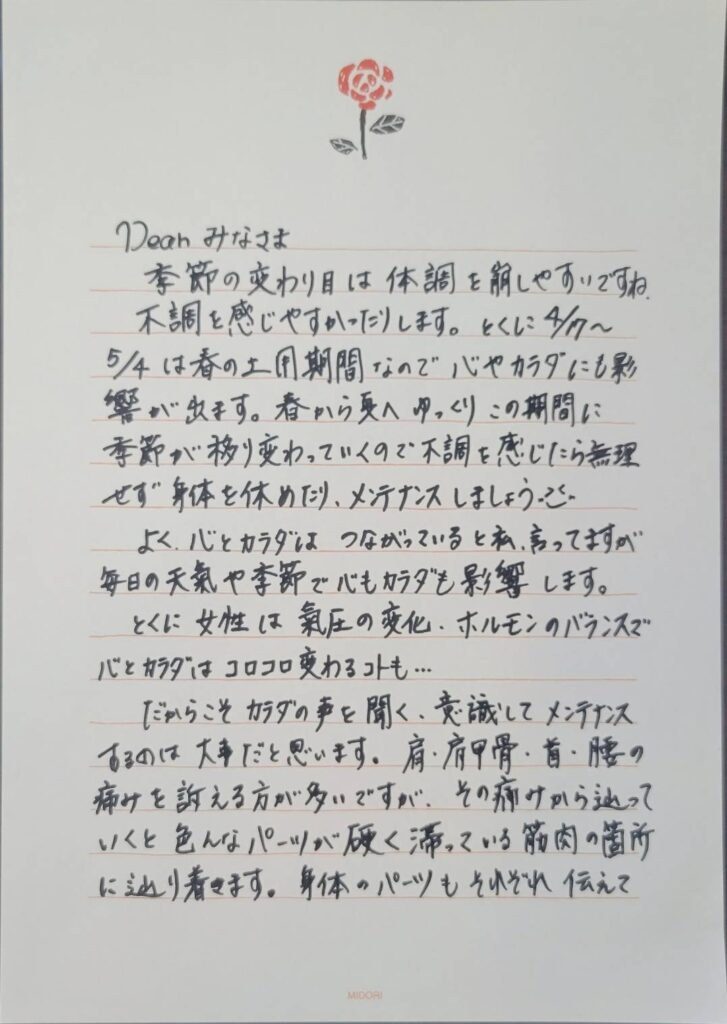 Dear みなさま
季節の変わり目は体調を崩しやすいですね、
不調を感じやすかったりします。とくに4/17～
5/4は春の土用期間なので心やカラダにも影
響が出ます。春から夏へゆっくりこの期間に
季節が移り変わっていくので不調を感じたら無理
せず身体を休めたり、メンテナンスしましょう
よく、心とカラダはつながっていると私、言ってますが
毎日の天氣や季節で心もカラダも影響します。
とくに女性は氣圧の変化、ホルモンのバランスで
心とカラダはコロコロ変わるコトも…
だからこそカラダの声を聞く、意識してメンテナンス
するのは大事だと思います。肩・肩甲骨・首・腰の
痛みを訴える方が多いですが、その痛みから辿って
いくと色んなパーツが硬く滞っている筋肉の箇所
に辿り着きます。身体のパーツもそれぞれ伝えて
MIDORI